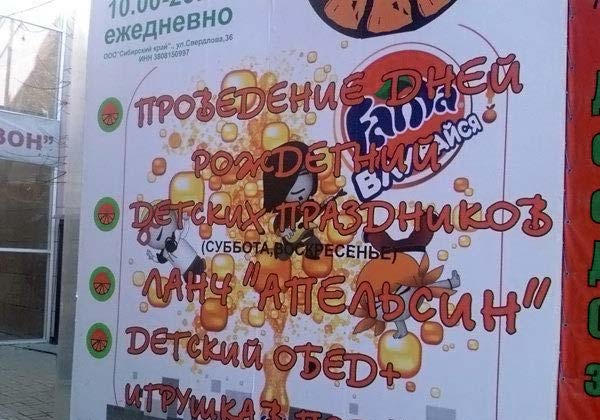 10.00-20
ежедневно
ООО"Сибирский край"., ул.Свердлова,36
ИНН 3808150997
ЗОН"
ПРОВЕДЕНИЕ ДНЕЙ
РОЖДЕТНИЙ
Fanta
ВЛИВАЙСЯ
ДЕТСКИХ ПРАЗДНИКОВ
(СУББОТА,ВОСКРЕСЕНЬЕ)
ЛАНЧ "АПЕЛЬСИН"
ДЕТСКИЙ ОБЕД+
ИГРУШКА В